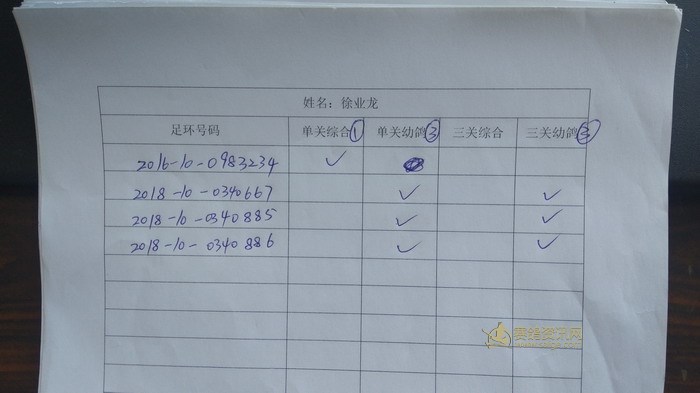 姓名：徐业龙
足环号码 单关综合① 单关幼鸽③ 三关综合 三关幼鸽③
2016-10-0983234 ✓
2018-10-0340667 ✓ ✓
2018-10-0340885 ✓ ✓
2018-10-0340886 ✓ ✓
赛鸽资讯网